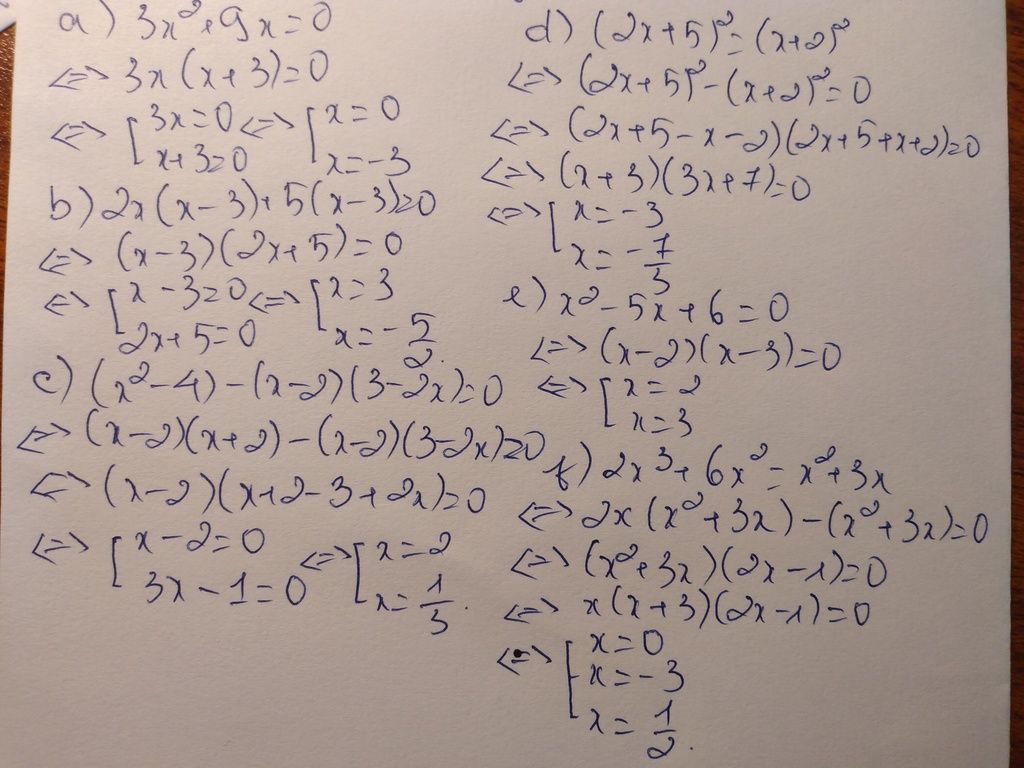 a) 3x²+9x=0
<=> 3x(x+3)=0
<=> [3x=0 <=> [x=0
x+3=0 x=-3
b) 2x(x-3)+5(x-3)=0
<=> (x-3)(2x+5)=0
<=> [x-3=0 <=> [x=3
2x+5=0 x=-5/2.
c) (x²-4)-(x-2)(3-2x)=0
<=> (x-2)(x+2)-(x-2)(3-2x)=0
<=> (x-2)(x+2-3+2x)=0
<=> [x-2=0 <=> [x=2
3x-1=0 x=1/3.
d) (2x+5)²=(x+2)²
<=> (2x+5)²-(x+2)²=0
<=> (2x+5-x-2)(2x+5+x+2)=0
<=> (x+3)(3x+7)=0
<=> [x=-3
x=-7/3
e) x²-5x+6=0
<=> (x-2)(x-3)=0
<=> [x=2
x=3
f) 2x³+6x²=x²+3x
<=> 2x(x²+3x)-(x²+3x)=0
<=> (x²+3x)(2x-1)=0
<=> x(x+3)(2x-1)=0
<=> [x=0
x=-3
x=1/2.